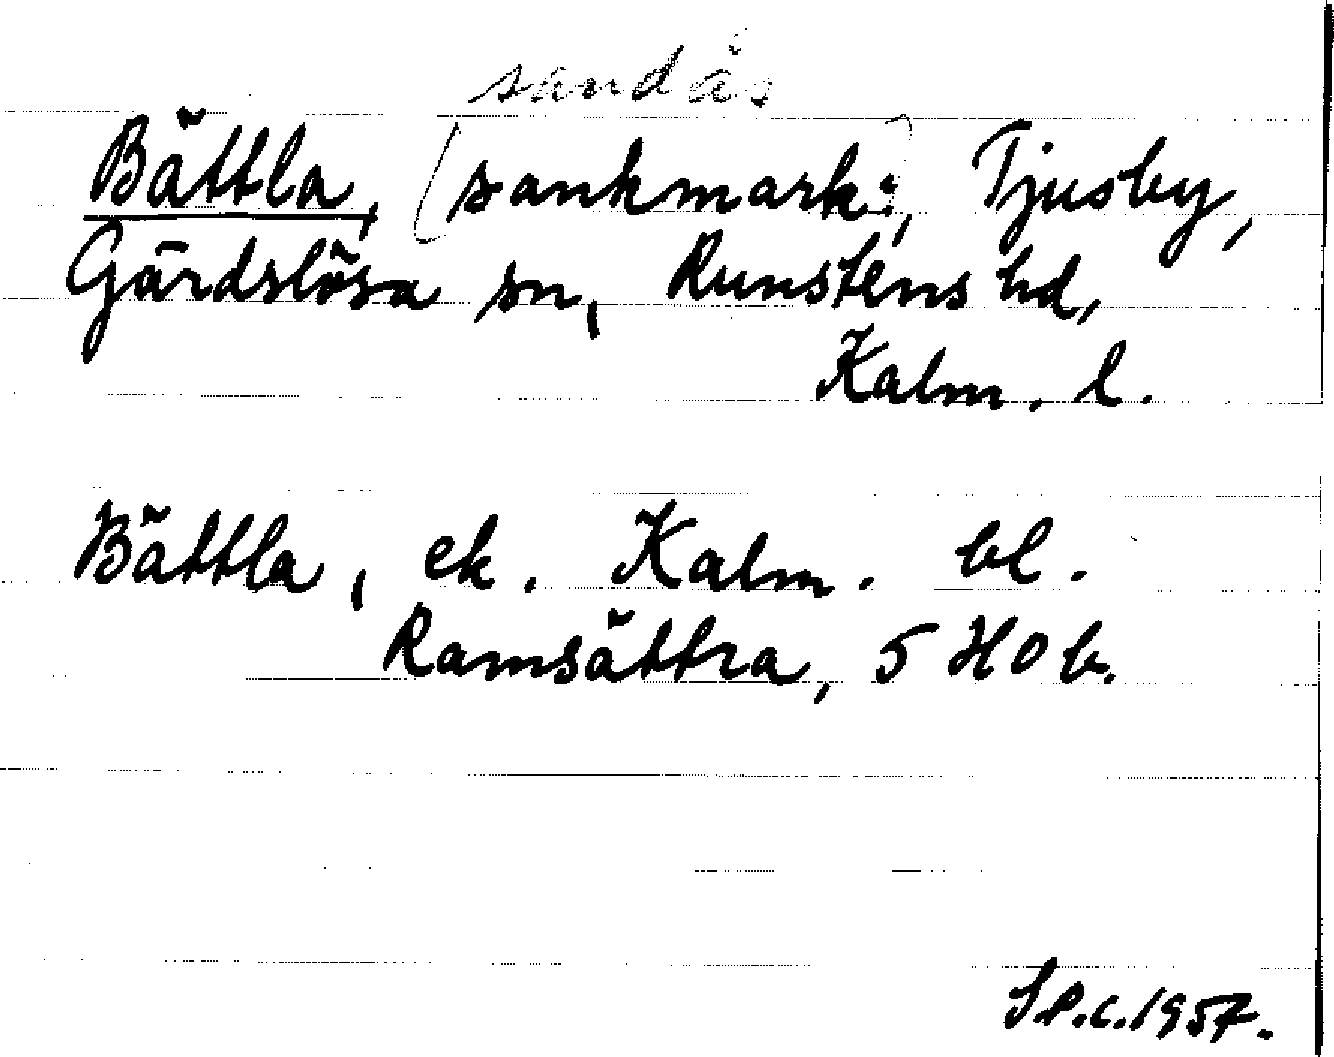 sandås
Bättla, (sankmark:), Tjusby,
Gärdslösa sn, Runstens hd,
Kalm. l.
Bättla, ek. Kalm. bl.
Ramsättra, 5 HOb.
S.P.C. 1957.